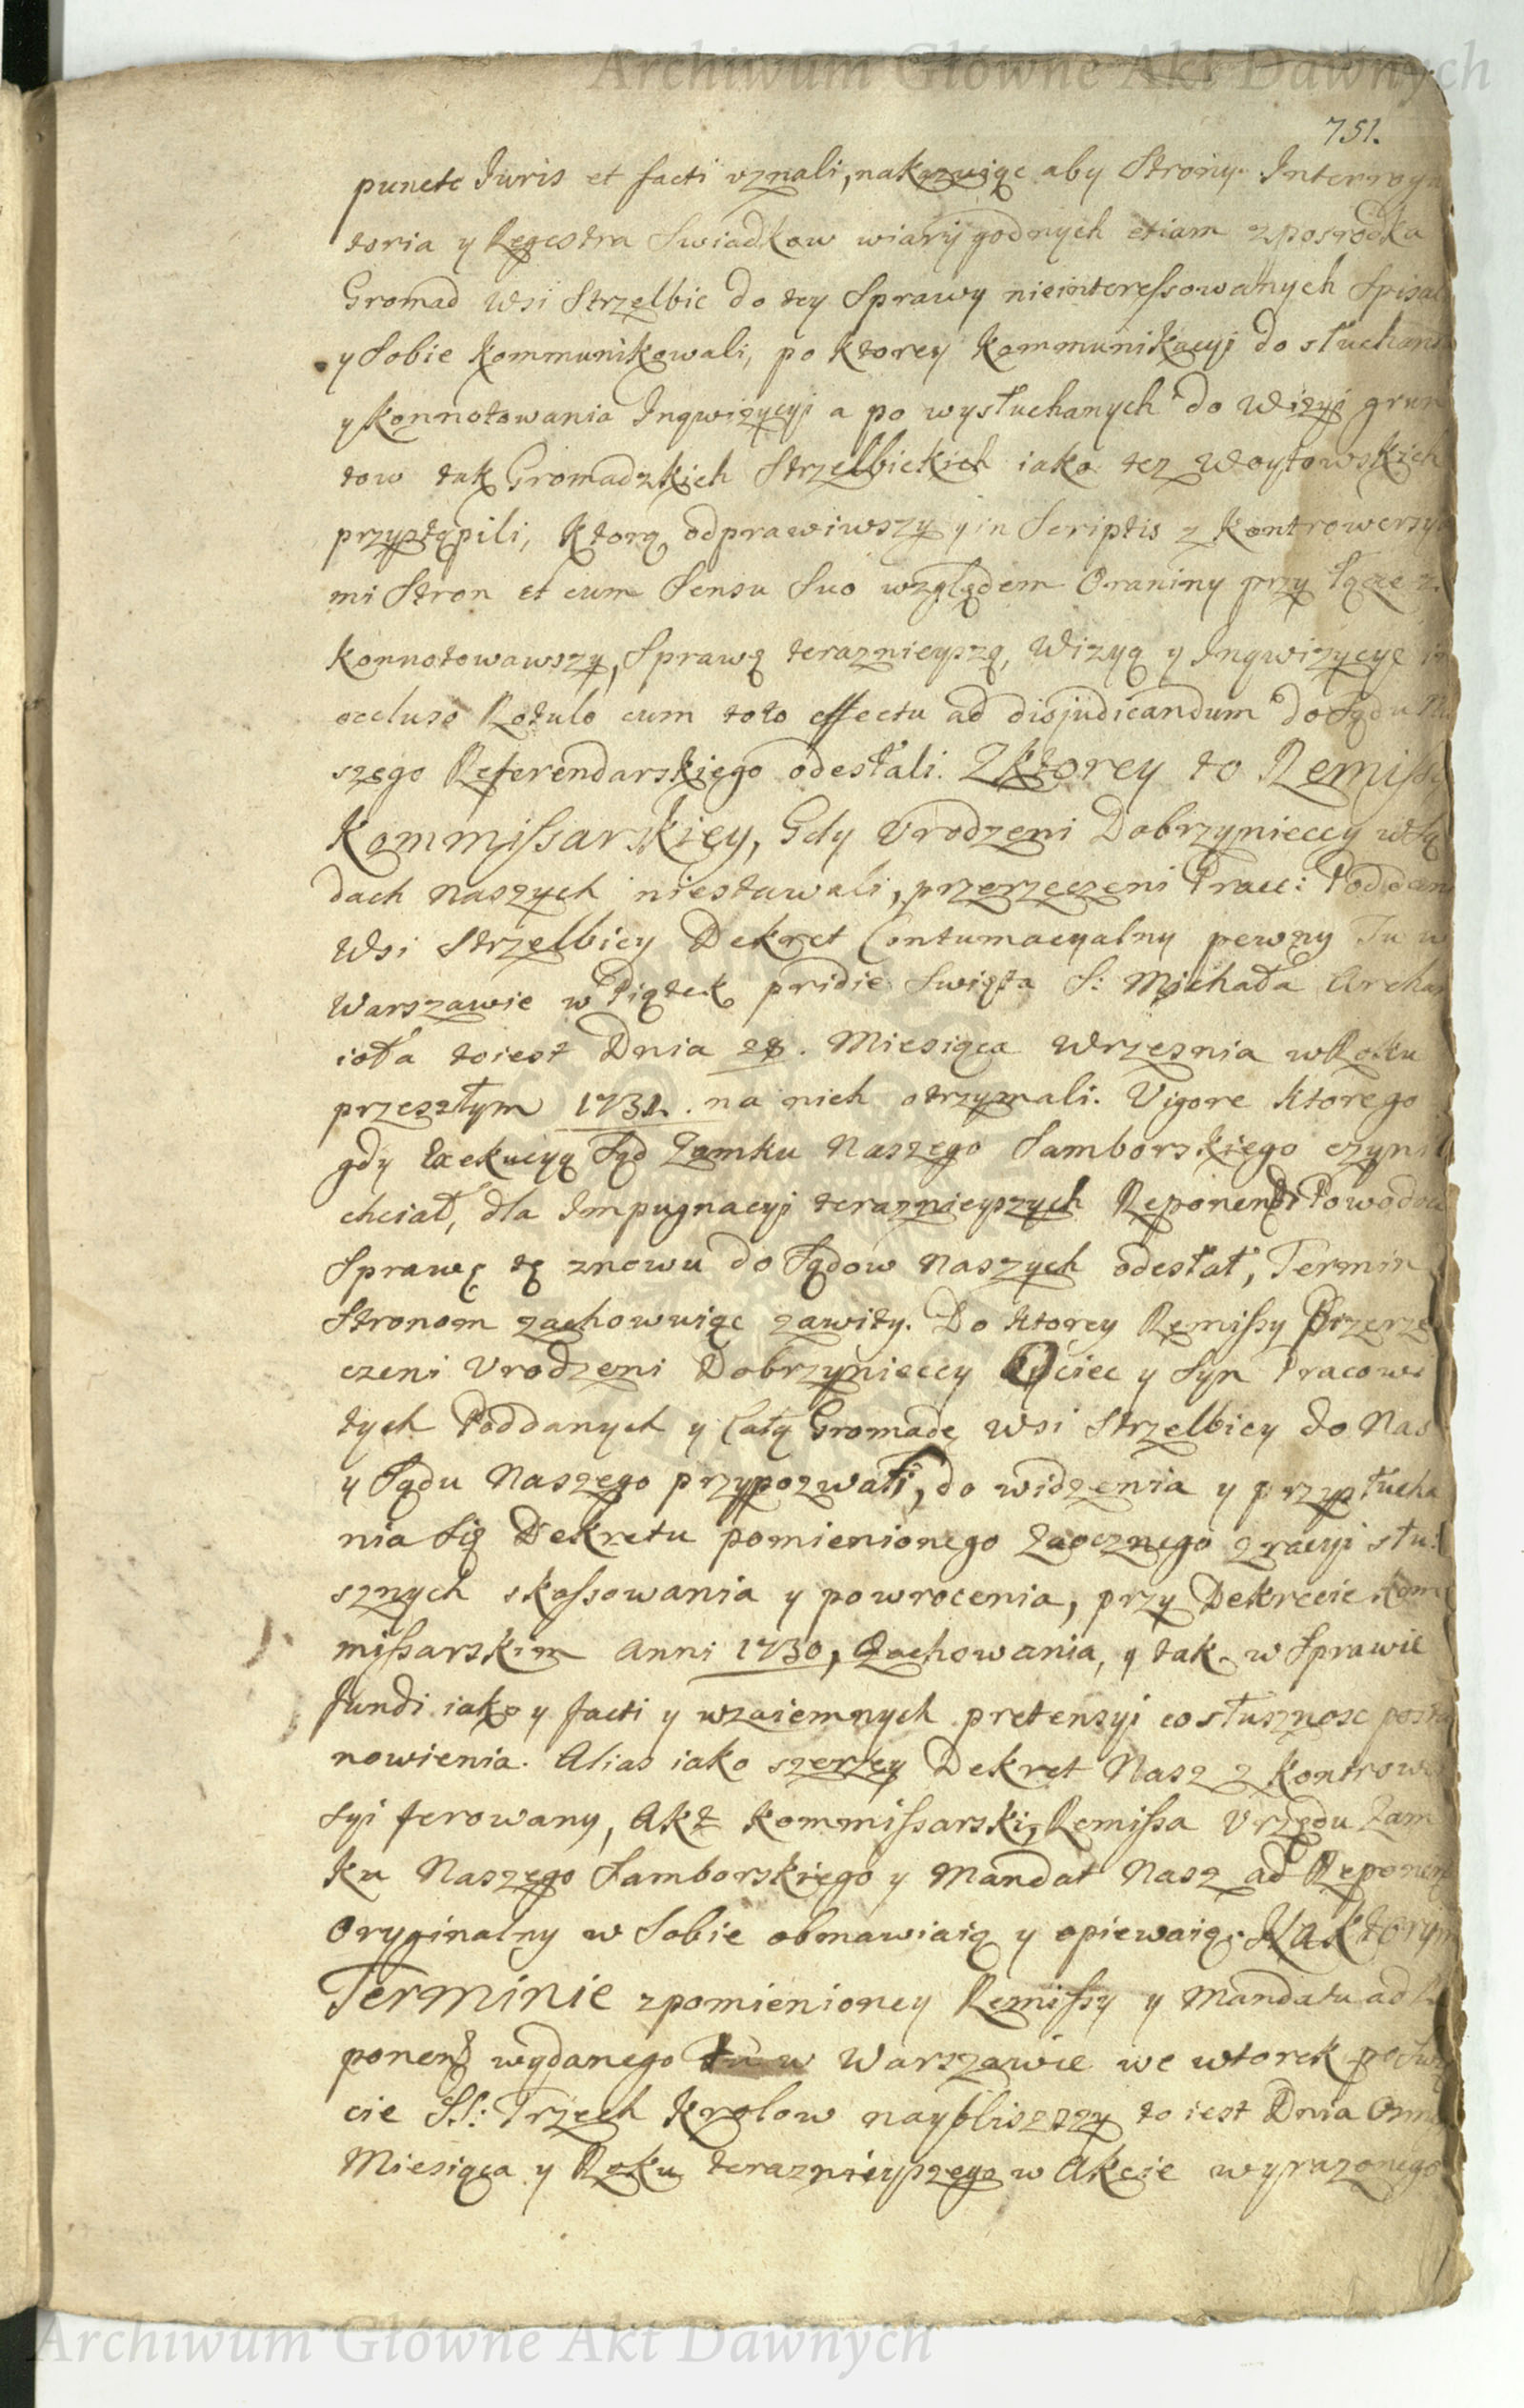 Archiwum Główne Akt Dawnych
751.
puncte Iuris et facti uznali, nakazuiąc aby Strony Interroga
toria y Regestra Swiadkow wiary godnych etiam zposrodka
Gromad Wsi Strzelbic do tey Sprawy nieinteressowanych Spisali
y Sobie kommunikowali, po ktorey kommunikacyi do słuchania
y konnotowania Inqwizycyi a po wysłuchanych do Wizyi grun
tow tak Gromadzkich Strzelbickich iako tez Woytowskich
przystąpili, ktorą odprawiwszy y in Scriptis z kontrowersya
mi Stron et cum Sensu Suo względem Oraniny przy łące
konnotowawszy, Sprawę teraznieyszą, Wizyą y Inqwizycyę in
occluso Rotulo cum toto effectu ad disjudicandum do Sądu Na
szego Referendarskiego odesłali. Zktorey to Remissy
Kommissarskiey, Gdy Urodzeni Dobrzynieccy wSą
dach Naszych niestawali, przerzeczeni Prac: Poddani
Wsi Strzelbicy Dekret Contumacyalny pewny Tu w
Warszawie w Piątek pridie Swięta S: Michała Archan
ioła toiest Dnia 28. Miesiąca Wrzesnia wRoku
przeszłym 1731. na nich otrzymali. Vigore ktorego
gdy Exekucyą Sąd Zamku Naszego Samborskiego czynić
chciał, dla Impugnacyi teraznieyszych Reponend Powodow
Sprawę tę znowu do Sądow Naszych odesłał, Termin
Stronom zachowuiąc zawity. Do ktorey Remissy Przerze
czeni Urodzeni Dobrzynieccy Oyciec y Syn Pracowi
tych Poddanych y Całą Gromadę Wsi Strzelbicy do Nas
y Sądu Naszego przypozwali, do widzenia y przysłucha
nia Się Dekretu pomienionego Zaocznego z racyi słu:
sznych skassowania y powrocenia, przy Dekrecie Kom
missarskim Anni 1730, Zachowania, y tak w Sprawie
fundi iako y facti y wzaiemnych pretensyi co słusznosc posta
nowienia. Alias iako szerzey Dekret Nasz z kontrower
syi ferowany, Akt kommissarski, Remissa Urzędu Zam
ku Naszego Samborskiego y Mandat Nasz ad Reponend
Oryginalny w Sobie obmawiaią y opiewaią. Na ktorym
Terminie zpomienioney Remissy y Mandatu ad Re
ponend wydanego Tu w Warszawie we wtorek po Swię
cie SS: Trzech Krolow nayblizszy to iest Dnia
Miesiąca y Roku teraznieyszego w Akcie wyrazonego
Archiwum Główne Akt Dawnych